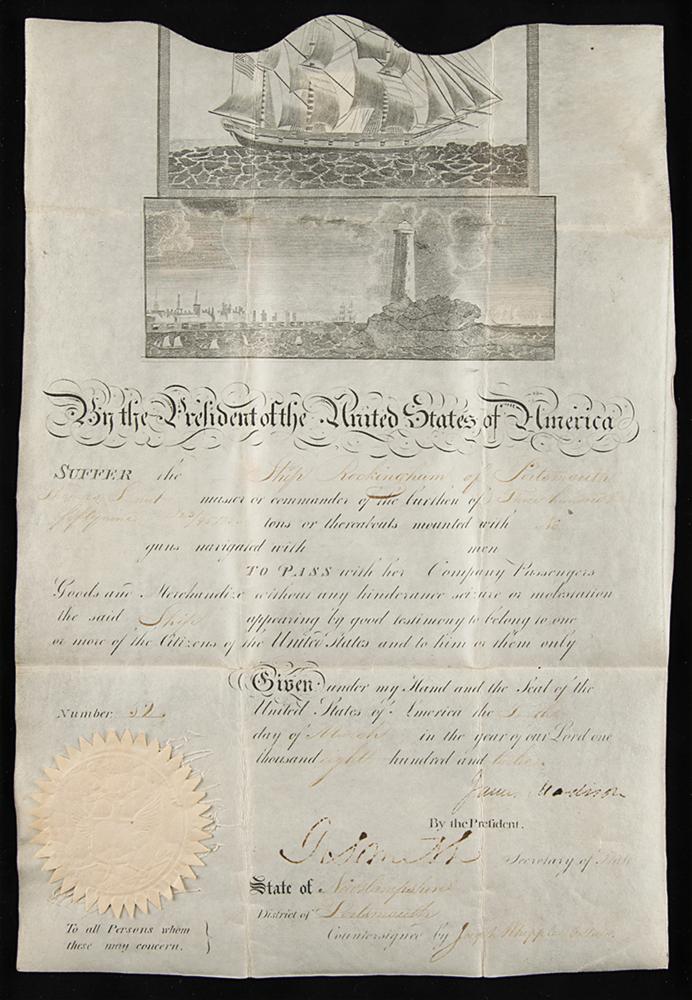 By the President of the United States of America
SUFFER the Ship Rockingham of Portsmouth
master or commander of the burthen of three hundred
fifty nine tons or thereabouts mounted with No
guns navigated with men
TO PASS with her Company Passengers
Goods and Merchandize without any hinderance seizure or molestation
the said Ship appearing by good testimony to belong to one
or more of the Citizens of the United States and to him or them only
Given under my Hand and the Seal of the
United States of America the
day of March in the year of our Lord one
thousand eight hundred and
Number 51
James Madison
By the President.
Secretary of State
State of Newhampshire
District of Portsmouth
Countersigned by Joseph Whipple
To all Persons whom
these may concern.